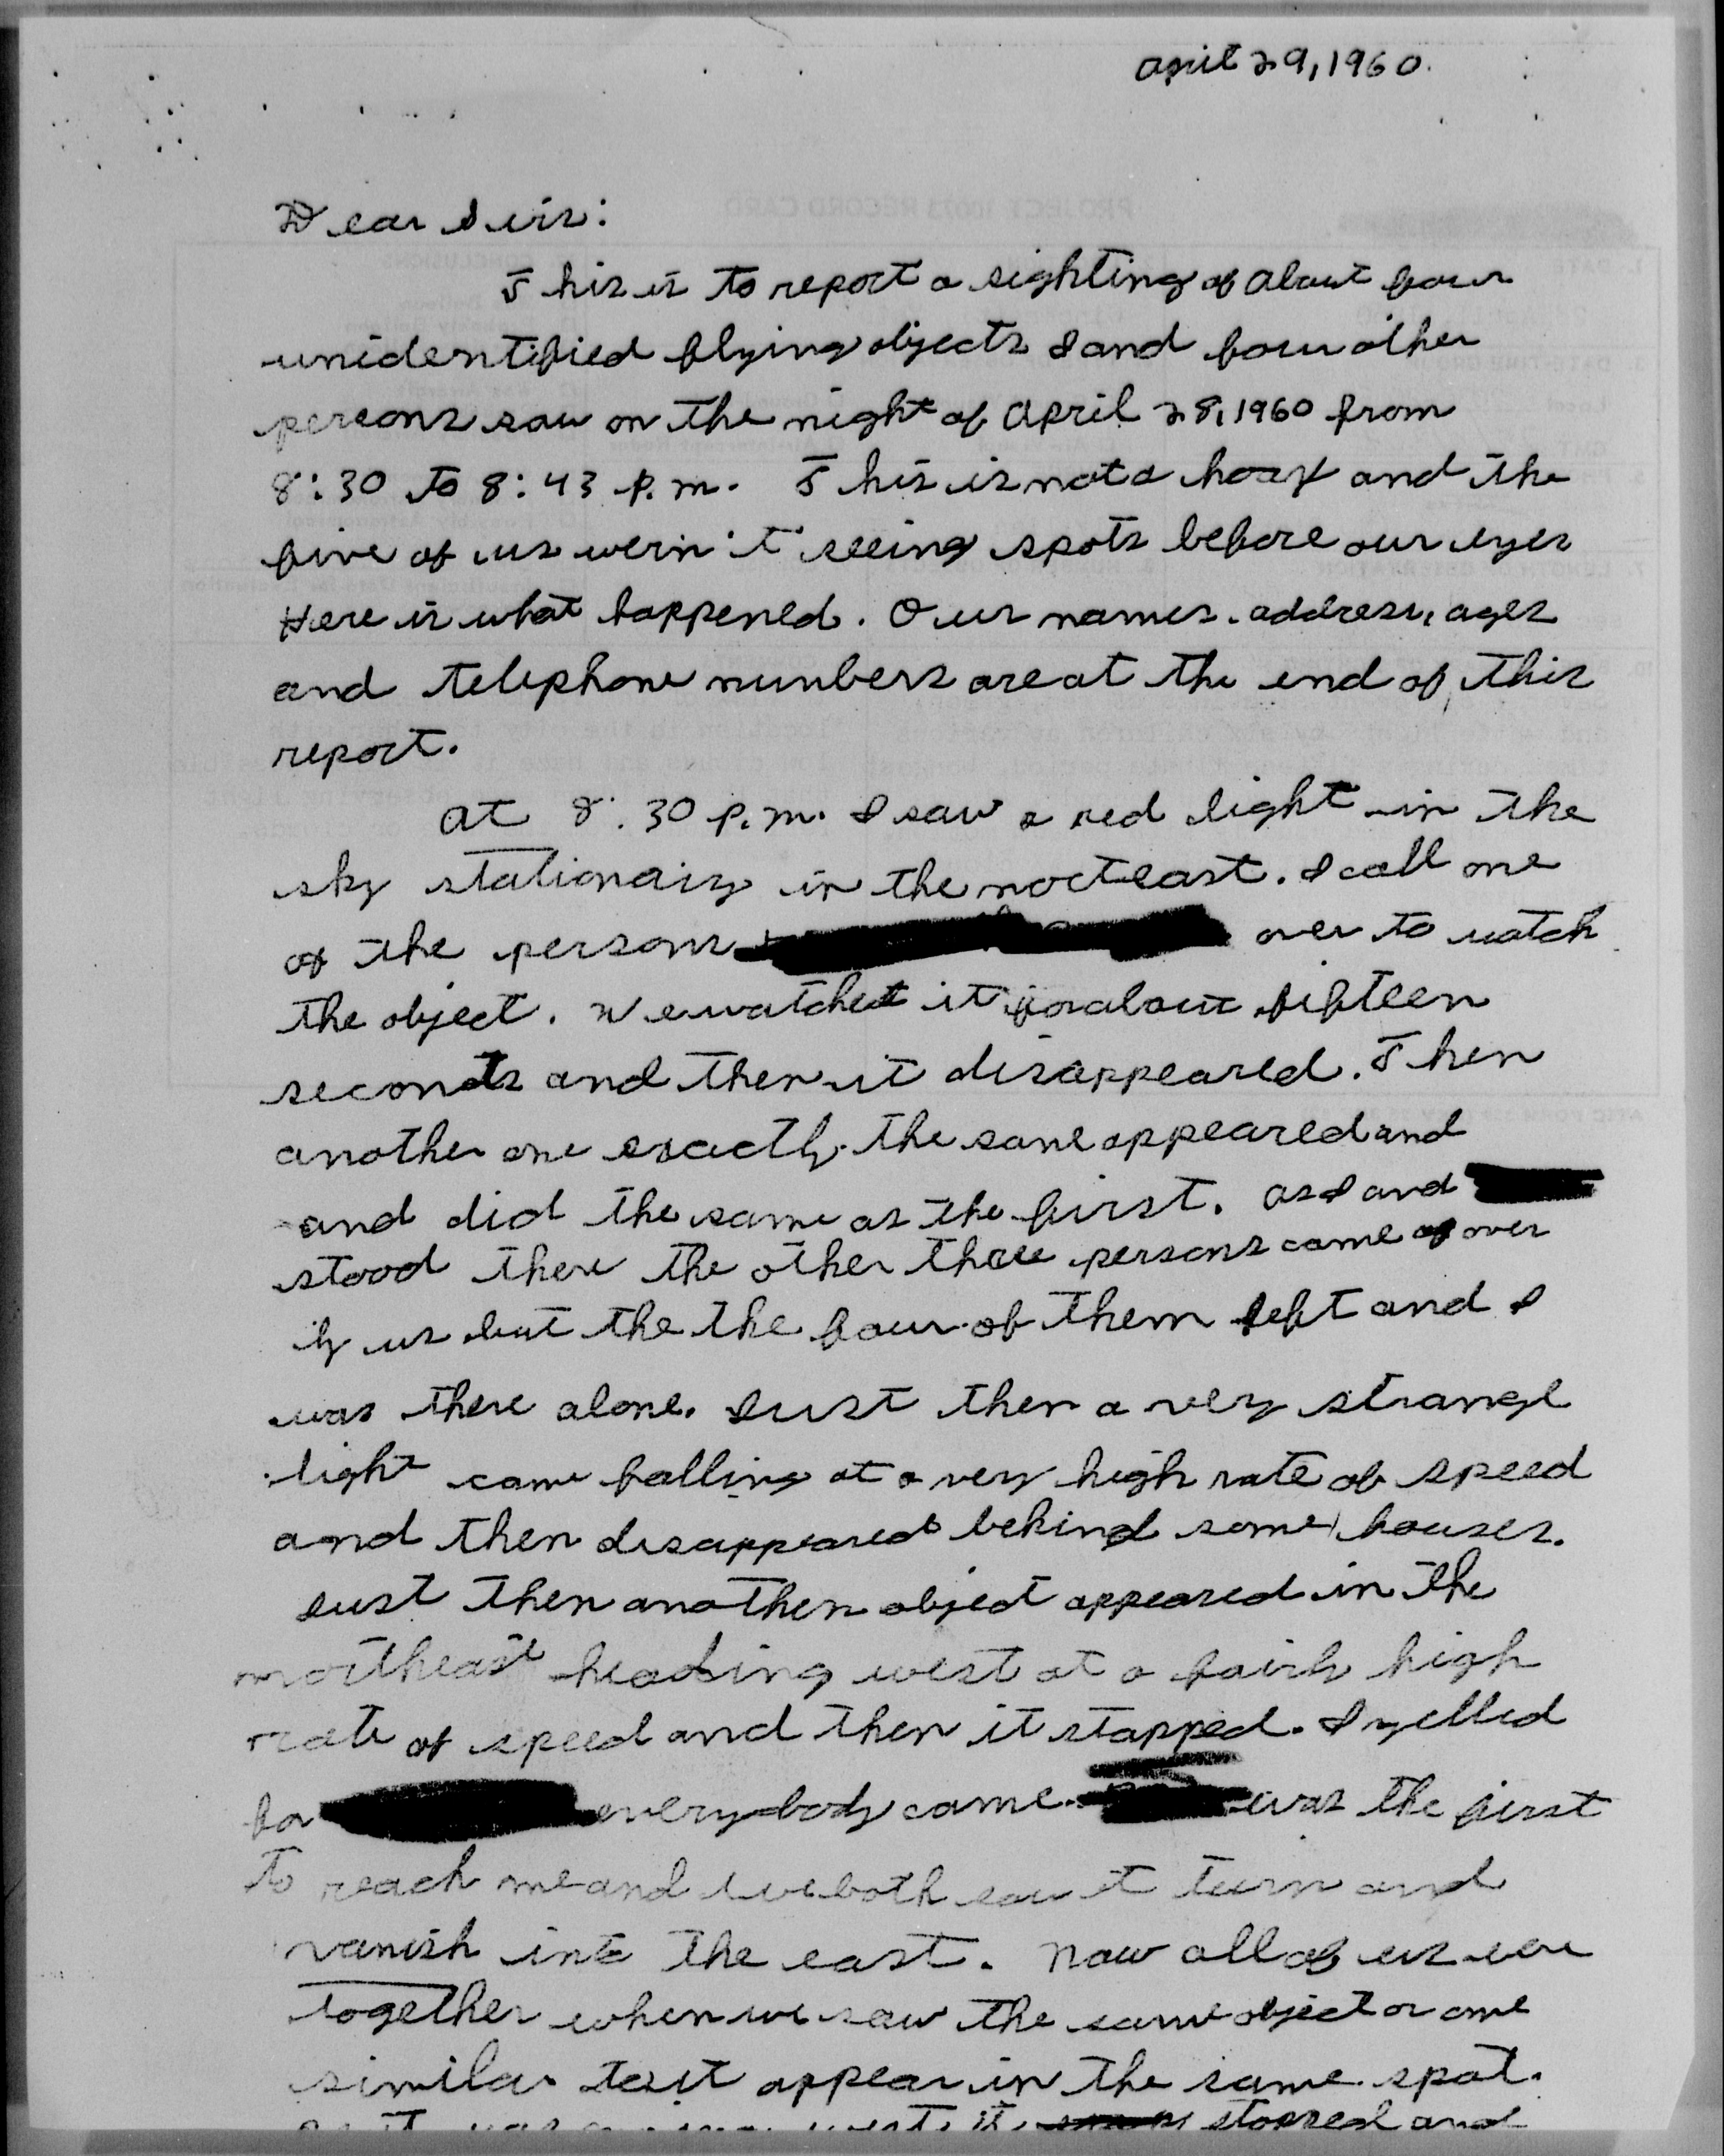 april 29, 1960.
Dear Sirs:
This is to report a sighting of about four
unidentified flying objects I and four other
persons saw on the night of April 28, 1960 from
8:30 to 8:43 p.m. This is not a hoax and the
five of us werin't seeing spots before our eyes
Here is what happened. Our names, address, ages
and telephone numbers are at the end of this
report.
At 8:30 p.m. I saw a red light in the
sky stationairy in the norteast. I call one
of the persons over to watch
the object. We watched it for about fifteen
seconds and then it disappeared. Then
another one exactly the same appeared and
and did the same as the first. As I and
stood there the other three persons came over
by us but the the four of them left and I
was there alone. Just then a very strange
light came falling at a very high rate of speed
and then disappeared behind some houses.
Just then another object appeared in the
northeast heading west at a fairly high
rate of speed and then it stopped. I yelled
for everybody came. was the first
to reach me and we both saw it turn and
vanish into the east. Now all of us were
together when we saw the same object or one
similar to it appear in the same spot.
west it stopped and